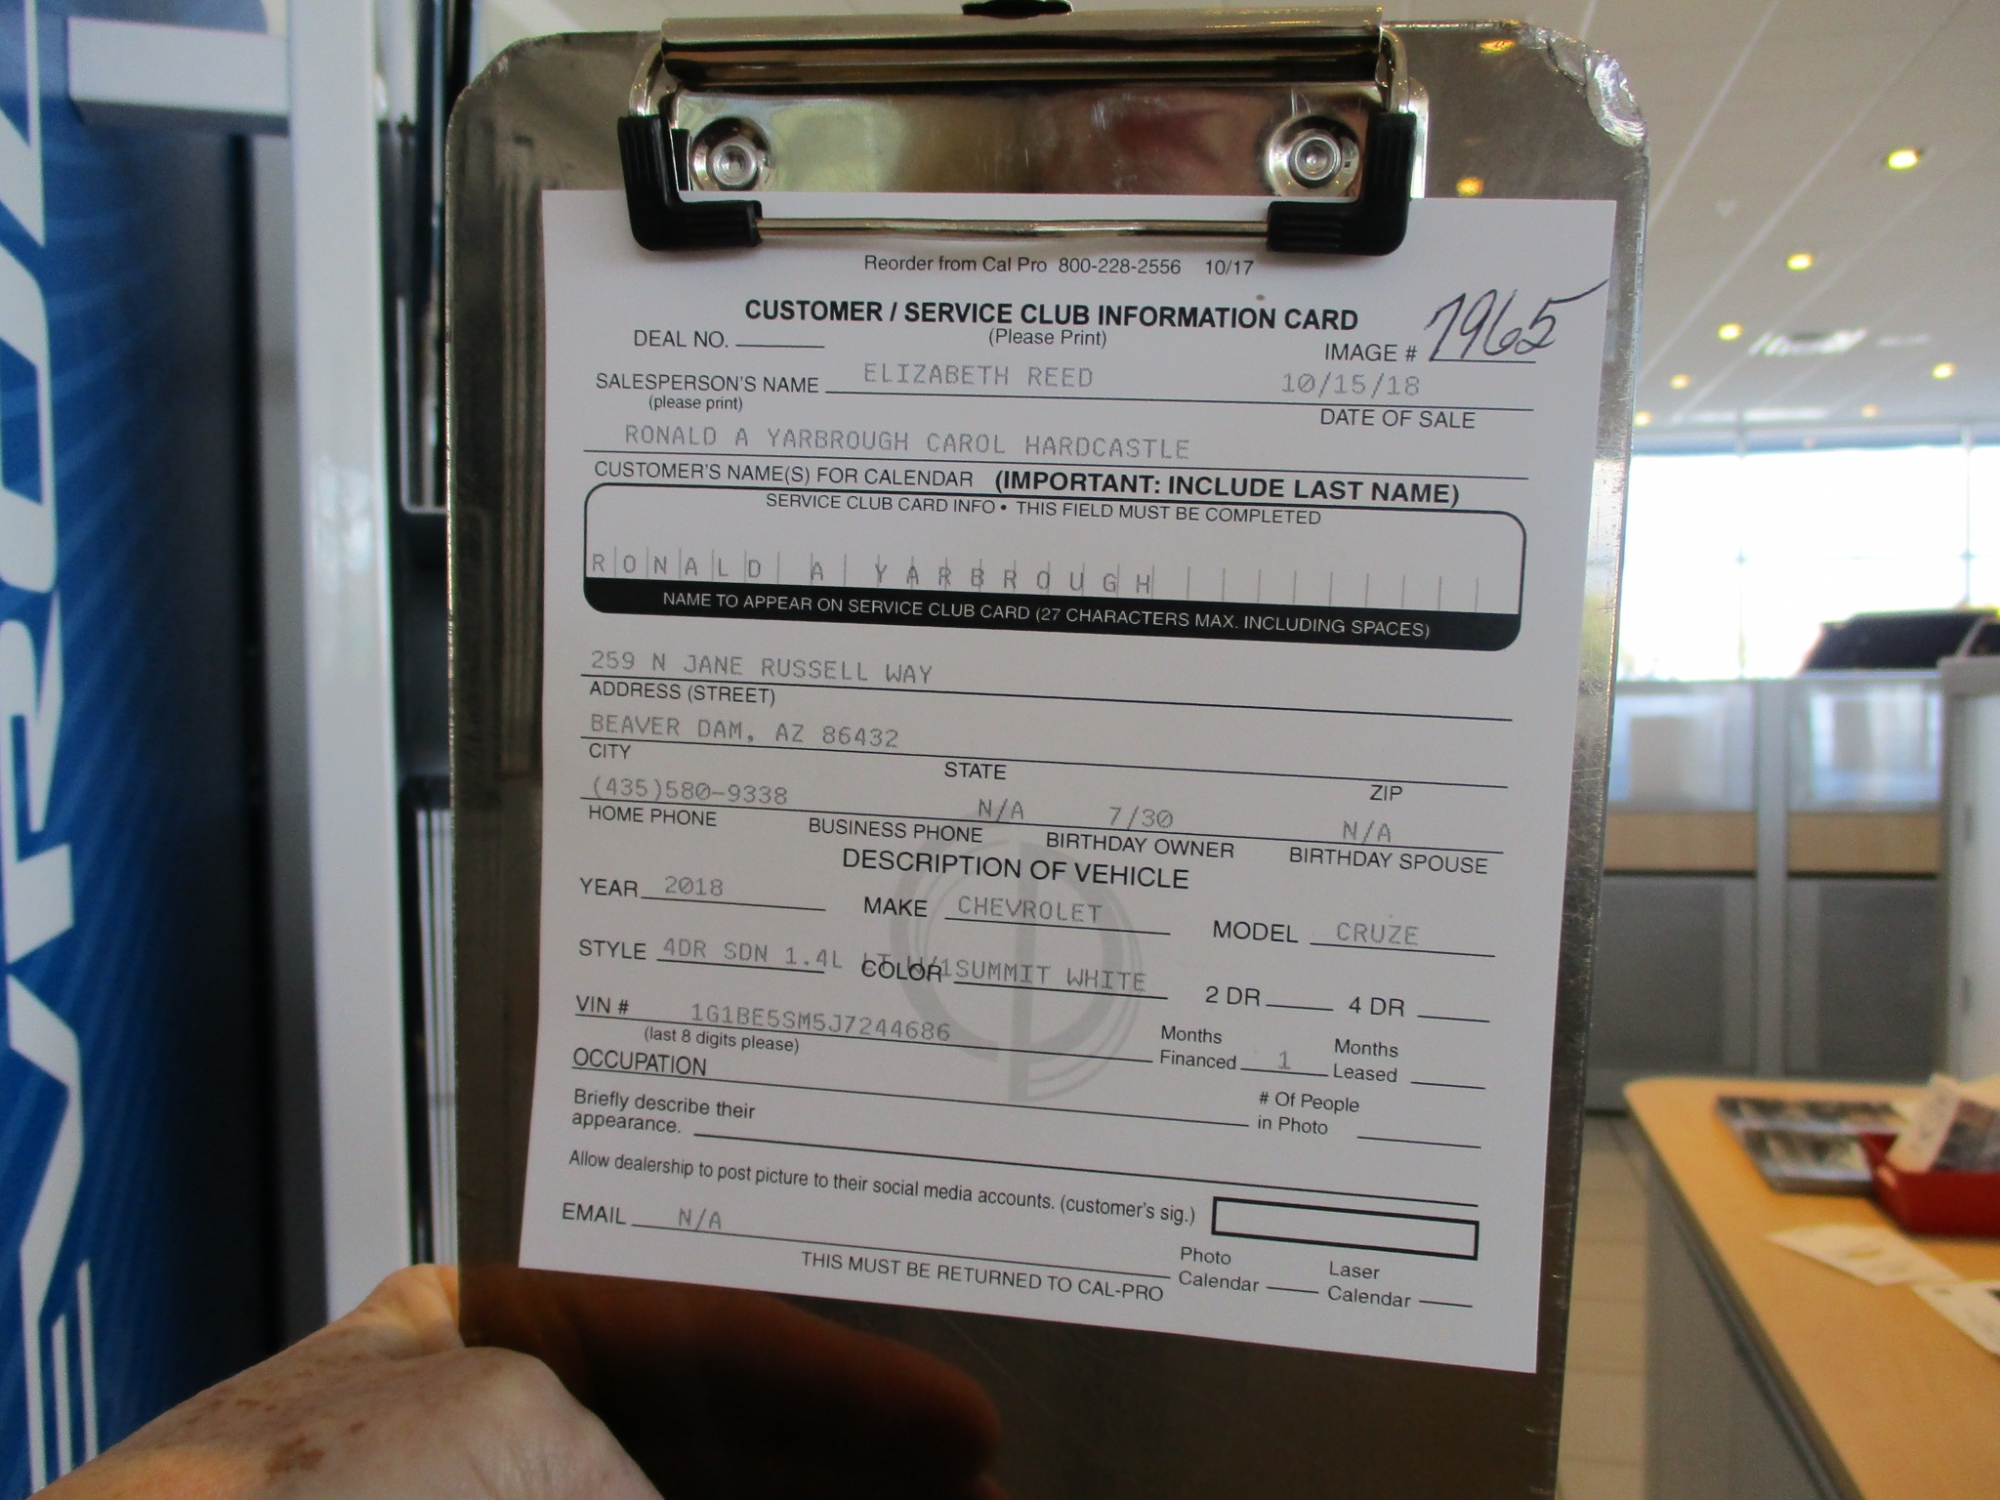 Reorder from Cal Pro 800-228-2556 10/17
CUSTOMER / SERVICE CLUB INFORMATION CARD
(Please Print)
DEAL NO. IMAGE # 7965
SALESPERSON'S NAME ELIZABETH REED 10/15/18
(please print) DATE OF SALE
RONALD A YARBROUGH CAROL HARDCASTLE
CUSTOMER'S NAME(S) FOR CALENDAR (IMPORTANT: INCLUDE LAST NAME)
SERVICE CLUB CARD INFO • THIS FIELD MUST BE COMPLETED
RONALD A YARBROUGH
NAME TO APPEAR ON SERVICE CLUB CARD (27 CHARACTERS MAX. INCLUDING SPACES)
259 N JANE RUSSELL WAY
ADDRESS (STREET)
BEAVER DAM, AZ 86432
CITY STATE ZIP
(435)580-9338 N/A 7/30 N/A
HOME PHONE BUSINESS PHONE BIRTHDAY OWNER BIRTHDAY SPOUSE
DESCRIPTION OF VEHICLE
YEAR 2018 MAKE CHEVROLET MODEL CRUZE
STYLE 4DR SDN 1.4L LT W/1 COLOR SUMMIT WHITE 2 DR 4 DR
VIN # 1G1BE5SM5J7244686
(last 8 digits please) Months Financed 1 Months Leased
OCCUPATION
# Of People in Photo
Briefly describe their
appearance.
Allow dealership to post picture to their social media accounts. (customer's sig.)
EMAIL N/A
Photo Calendar Laser Calendar
THIS MUST BE RETURNED TO CAL-PRO